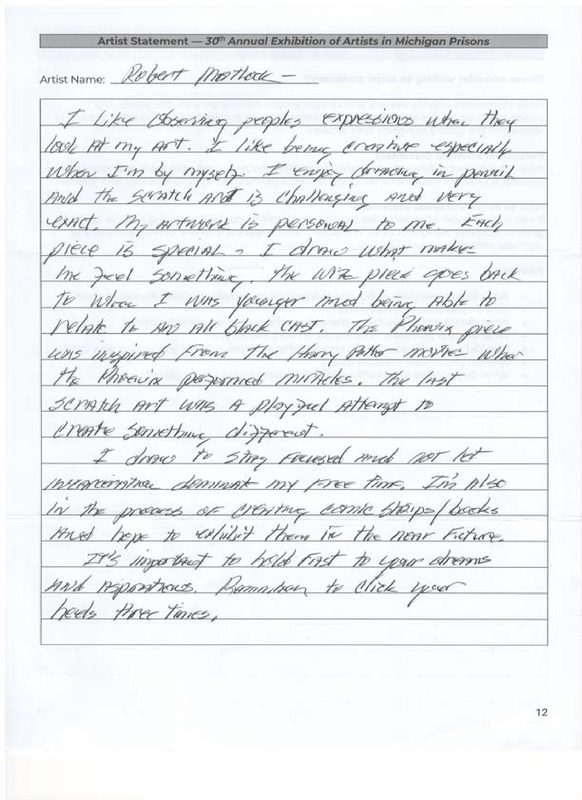 Artist Statement — 30th Annual Exhibition of Artists in Michigan Prisons
Artist Name: Robert Matlock —
I like observing peoples expressions when they
look at my art. I like being creative especially
when I'm by myself. I enjoy drawing in pencil
and the scratch art is challenging and very
exact. My artwork is personal to me. Each
piece is special - I draw what makes
me feel something, the Wiz piece goes back
to when I was younger and being able to
relate to an all black cast. The Phoenix piece
was inspired from the Harry Potter movies when
the Phoenix performed miracles. The last
scratch art was a playful attempt to
create something different.
I draw to stay focused and not let
incarceration dominate my free time. I'm also
in the process of creating comic strips/books
and hope to exhibit them in the near future.
It's important to hold fast to your dreams
and aspirations. Remember to click your
heels three times.
12